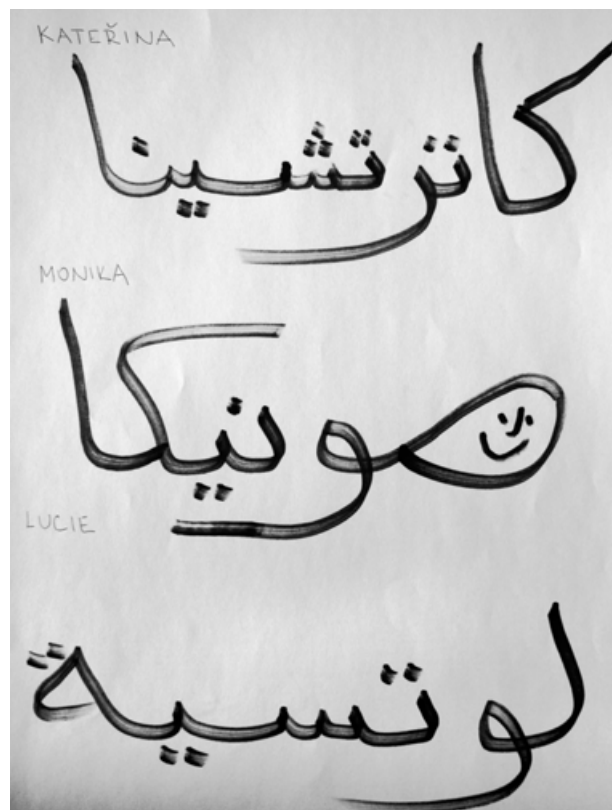 KATEŘINA
كاترتشينا
MONIKA
مونيكا
LUCIE
لوتسية